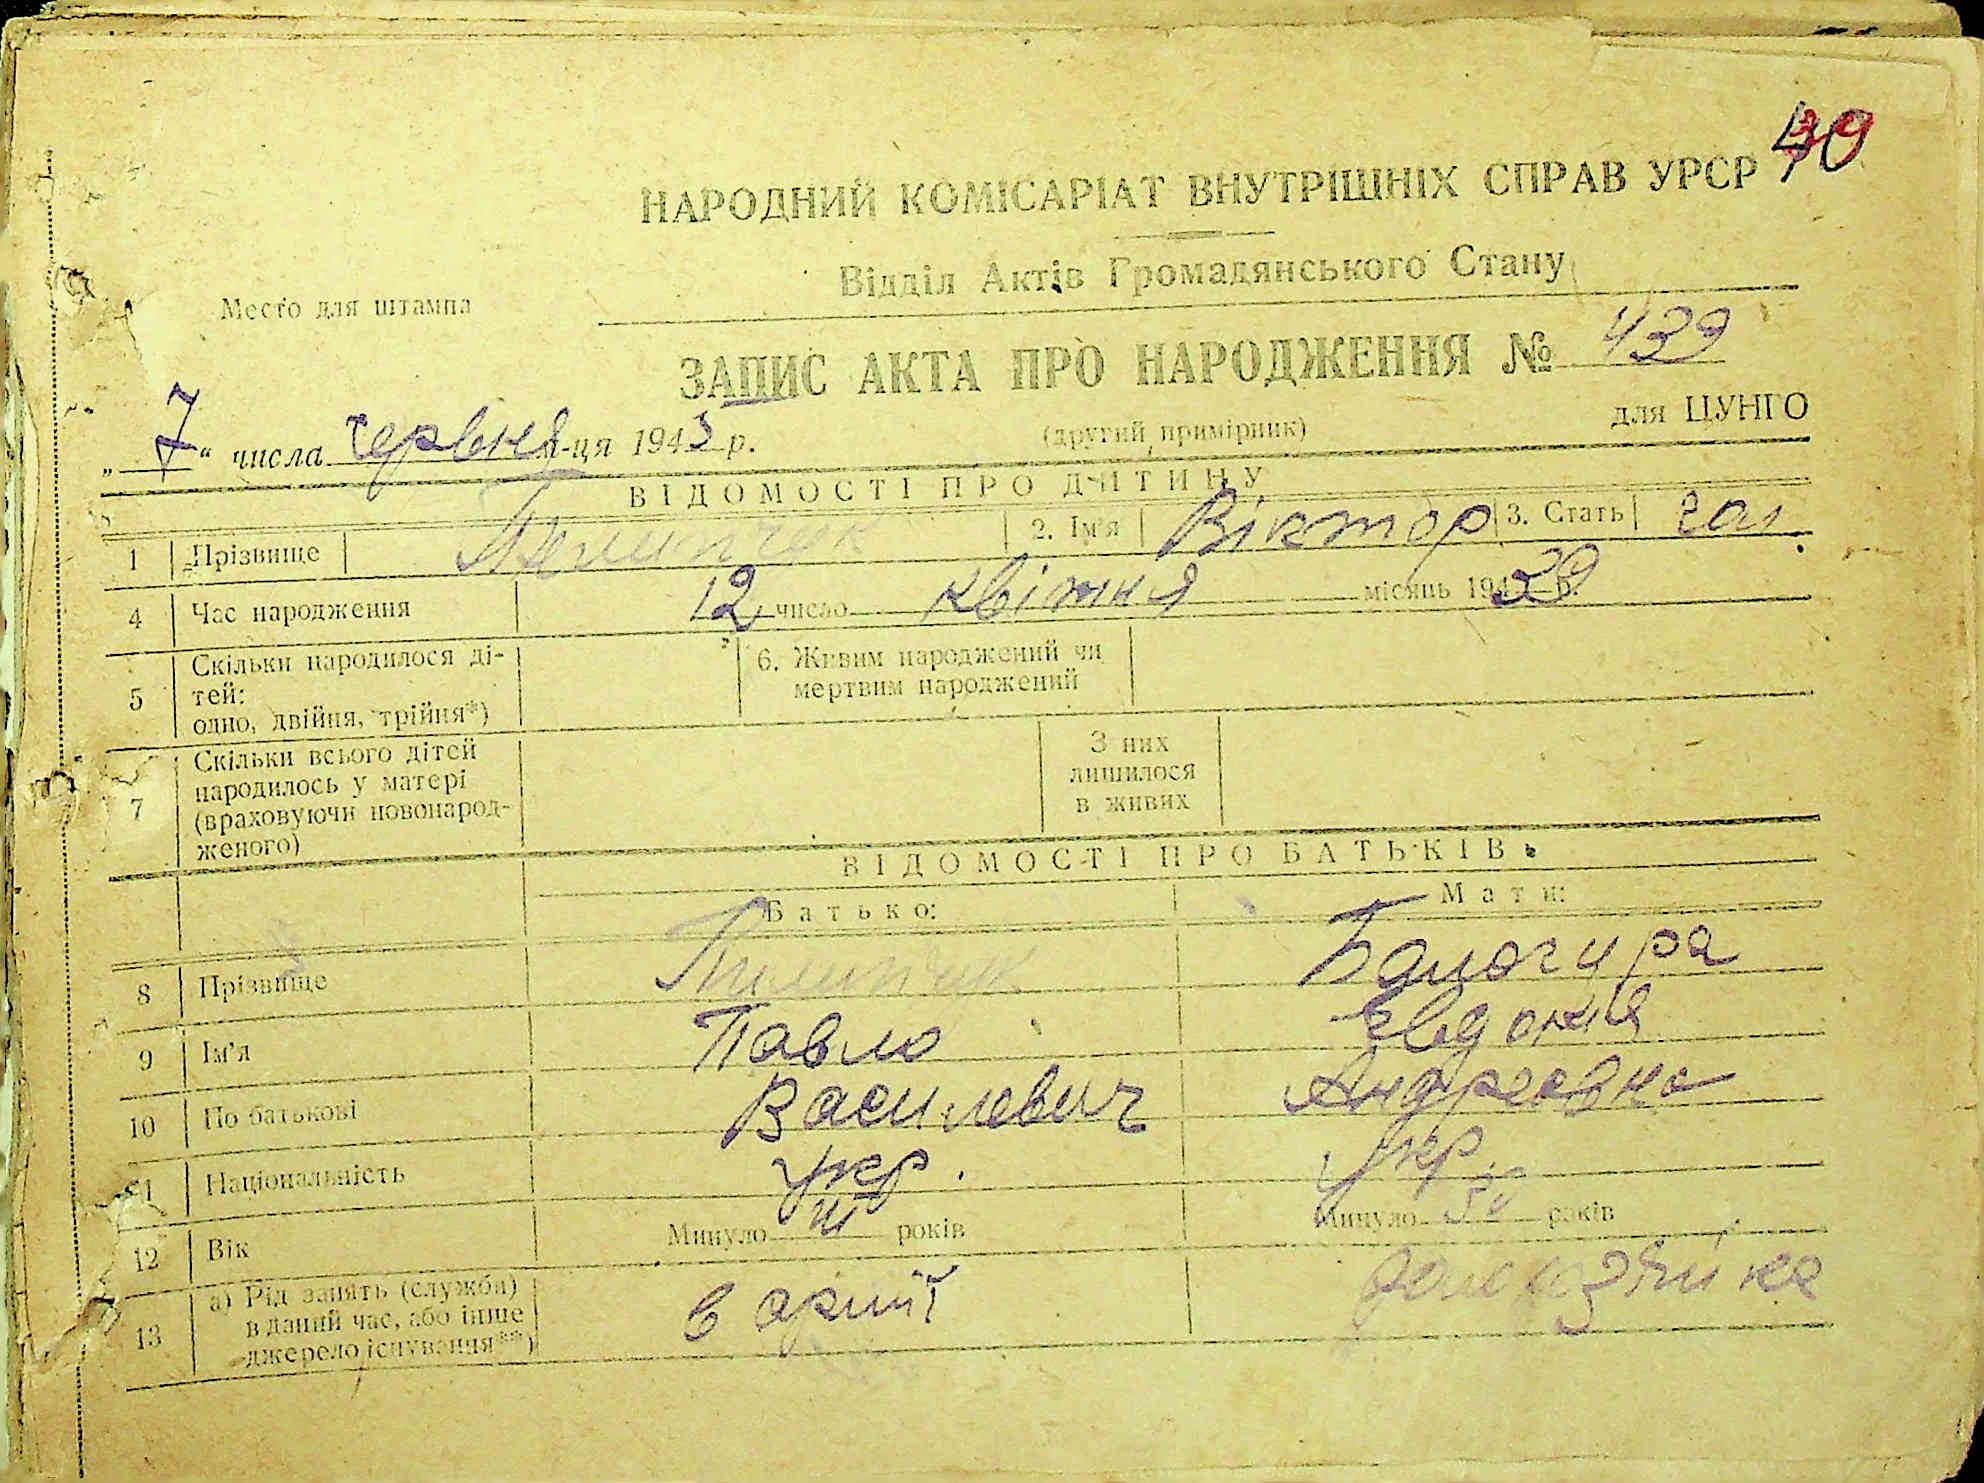 40
НАРОДНИЙ КОМІСАРІАТ ВНУТРІШНІХ СПРАВ УРСР
Відділ Актів Громадянського Стану
Место для штампа
ЗАПИС АКТА ПРО НАРОДЖЕННЯ № 439
„7“ числа червня м-ця 1943 р.
(другий примірник)
для ЦУНГО
ВІДОМОСТІ ПРО ДИТИНУ
1 Прізвище 2. Ім'я Віктор 3. Стать чол
4 Час народження 12 число квітня місяць 1939 р.
5 Скільки народилося ді-
тей:
одно, двійня, трійня*)
6. Живим народжений чи
мертвим народжений
7 Скільки всього дітей
народилось у матері
(враховуючи новонарод-
женого)
З них
лишилося
в живих
ВІДОМОСТІ ПРО БАТЬКІВ
Батько: Мати:
8 Прізвище
9 Ім'я Павло Евдокия
10 По батькові Василевич Андреевна
11 Національність укр. Укр.
12 Вік Минуло років Минуло 30 років
13 а) Рід занять (служби)
в даний час, або інше
джерело існування**)
в армії домохазяйка